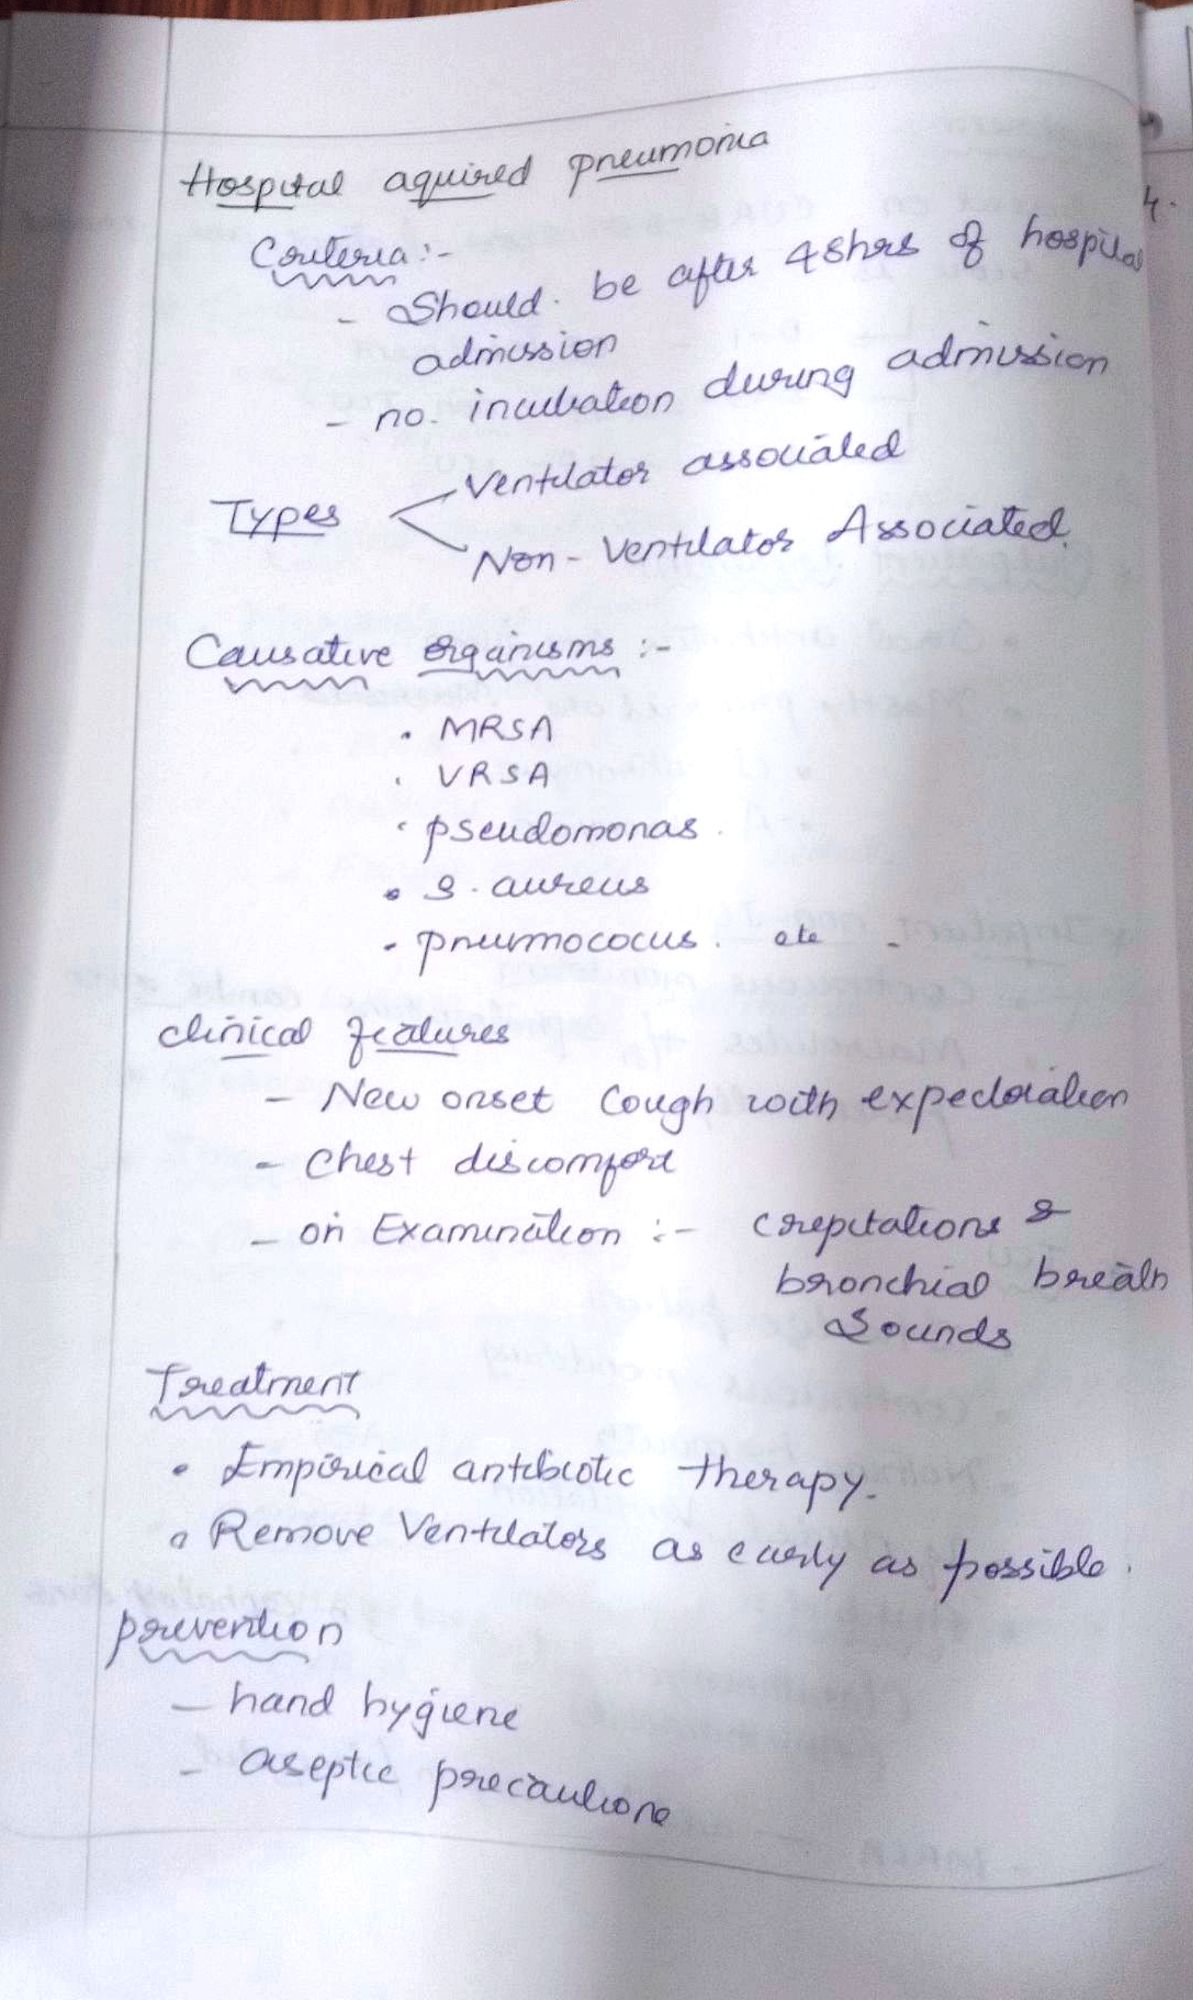 Hospital aquired pneumonia
Criteria :-
- Should be after 48hrs of hospital
admission
- no. incubation during admission
Types < Ventilator associated
Non - Ventilator Associated.
Causative organisms :-
• MRSA
• VRSA
• pseudomonas.
• S. aureus
• pnuemococus. etc -
clinical features
- New onset Cough with expectoration
- Chest discomfort
- on Examination :- crepitations &
bronchial breath
Sounds
Treatment
• Empirical antibiotic therapy.
• Remove Ventilators as early as possible.
prevention
- hand hygiene
- aseptic precautions